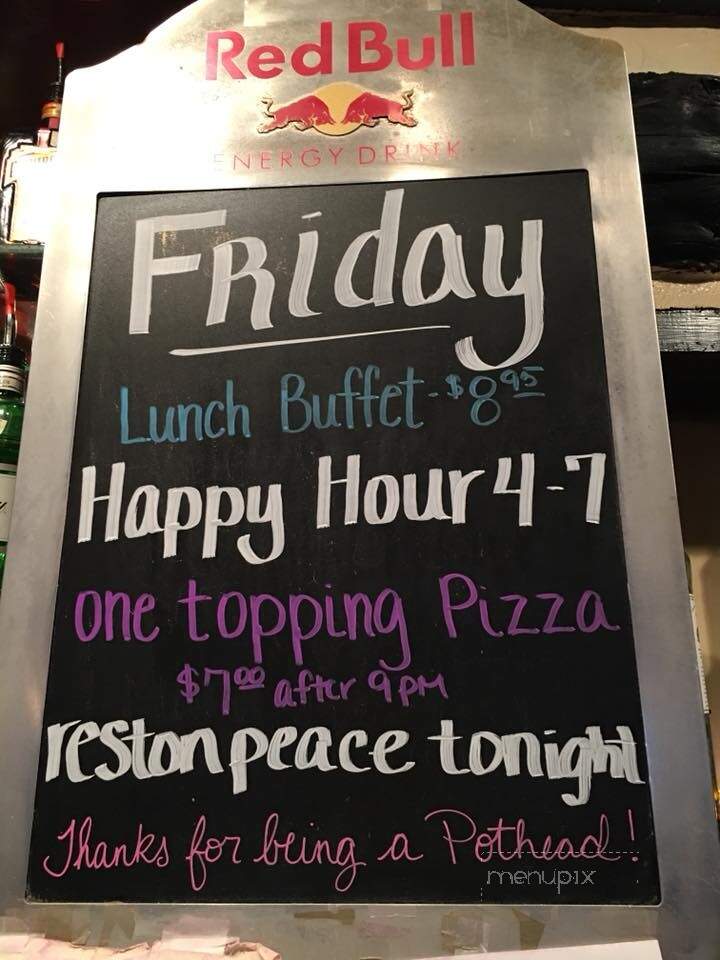 Red Bull
ENERGY DRINK
Friday
Lunch Buffet-$8.95
Happy Hour 4-7
one topping Pizza
$7.00 after 9pm
reston peace tonight
Thanks for being a Pothead!
menupix